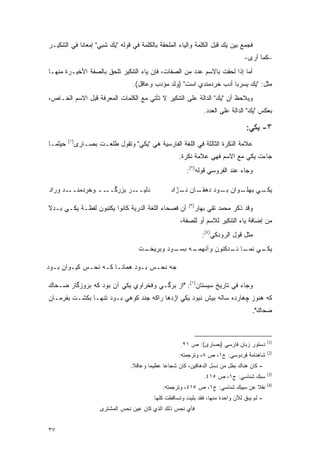 فجمع بين يك قبل الكلمة والياء الملحقة بالكلمة في قوله "يك شبي" إمعانا في التنكير
-كما أرى-
أما إذا لحقت بالاسم عدد من الصفات، فإن ياء التنكير تلحق بالصفة الأخيرة منها
مثل: "يك بسربا أدب خردمندي است" (ولد مؤدب وعاقل).
ويلاحظ أن "يك" الدالة على التنكير لا تأتي مع الكلمات المعرفة قبل الاسم الخاص،
بعكس "يك" الدالة على العدد.
٣- يكي:
علامة النكرة الثالثة في اللغة الفارسية هي "يكي" وتقول طلعت بصاري(١) حيثما
جاءت يكي مع الاسم فهي علامة نكرة.
وجاء عند الفردوسي قوله(٢):
يكي بهلوان بود دهقان نژاد
وقد ذكر محمد تقي بهار(٣) أن فصحاء اللغة الدرية كانوا يكتبون لفظة يكي بدلا
من إضافة ياء التنكير للاسم أو للصفة،
مثل قول الرودكي(٤):
جه نحس بود همانا كه نحس كيوان بود
وجاء في تاريخ سيستان(١): "از بزرگي وفخراوي يكي آن بود كه بروزگار ضحاك
كه هنوز چهارده ساله بيش نبود يكي اژدها راكه جند كوهي بود تنها بكشت بفرمان
ضحاك".
(1) دستور زبان فارسي (بصاري): ص ٩١.
(2) شاهنامة فردوسي: ج١، ص ٨- وترجمته:
– كان هناك بطل من نسل الدهاقين، كان شجاعا عظيما وعاقلا.
(3) سبك شناسي: ج١، ص ٤١٥.
(4) نقلا عن سببك شناسي: ج١، ص ٤١٥، وترجمته:
– لم يبق للآن واحدة منها، فقد بليت وتساقطت كلها
فأي نحس ذلك الذي كان عين نحس المشترى
٣٧